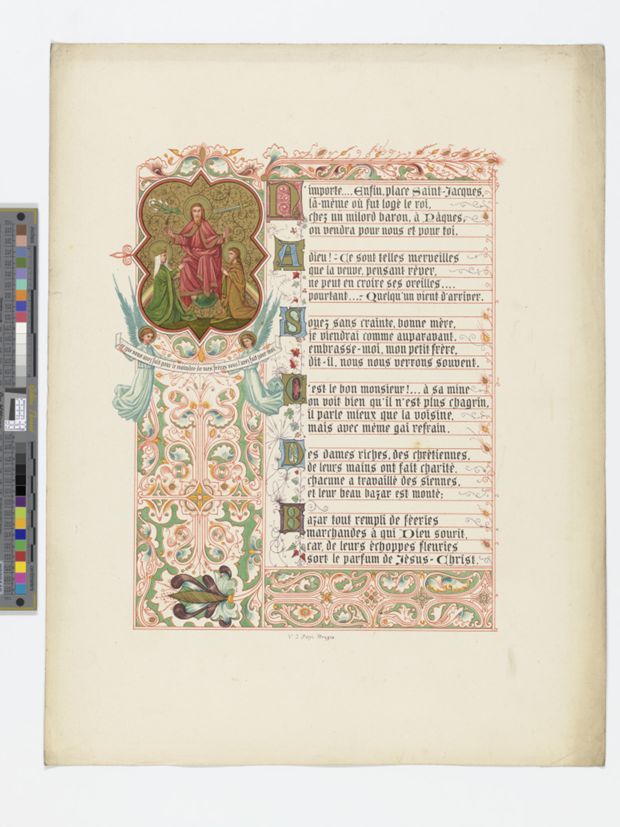 ce que vous avez fait pour le moindre de mes frères vous l'avez fait pour moi
N'importe.... Enfin, place Saint-Jacques,
là-même où fut logé le roi,
chez un milord baron, à Pâques,
on vendra pour nous et pour toi.
Adieu! - Ce sont telles merveilles
que la veuve, pensant rêver,
ne peut en croire ses oreilles....
pourtant...- Quelqu'un vient d'arriver.
Soyez sans crainte, bonne mère,
je viendrai comme auparavant.
embrasse-moi, mon petit frère,
dit-il, nous nous verrons souvent.
C'est le bon monsieur!... à sa mine
on voit bien qu'il n'est plus chagrin,
il parle mieux que la voisine,
mais avec même gai refrain.
Des dames riches, des chrétiennes,
de leurs mains ont fait charité.
chacune a travaillé des siennes,
et leur beau bazar est monté;
Bazar tout rempli de féeries
marchandes à qui Dieu sourit,
car, de leurs échoppes fleuries
sort le parfum de Jésus-Christ.
Bruges